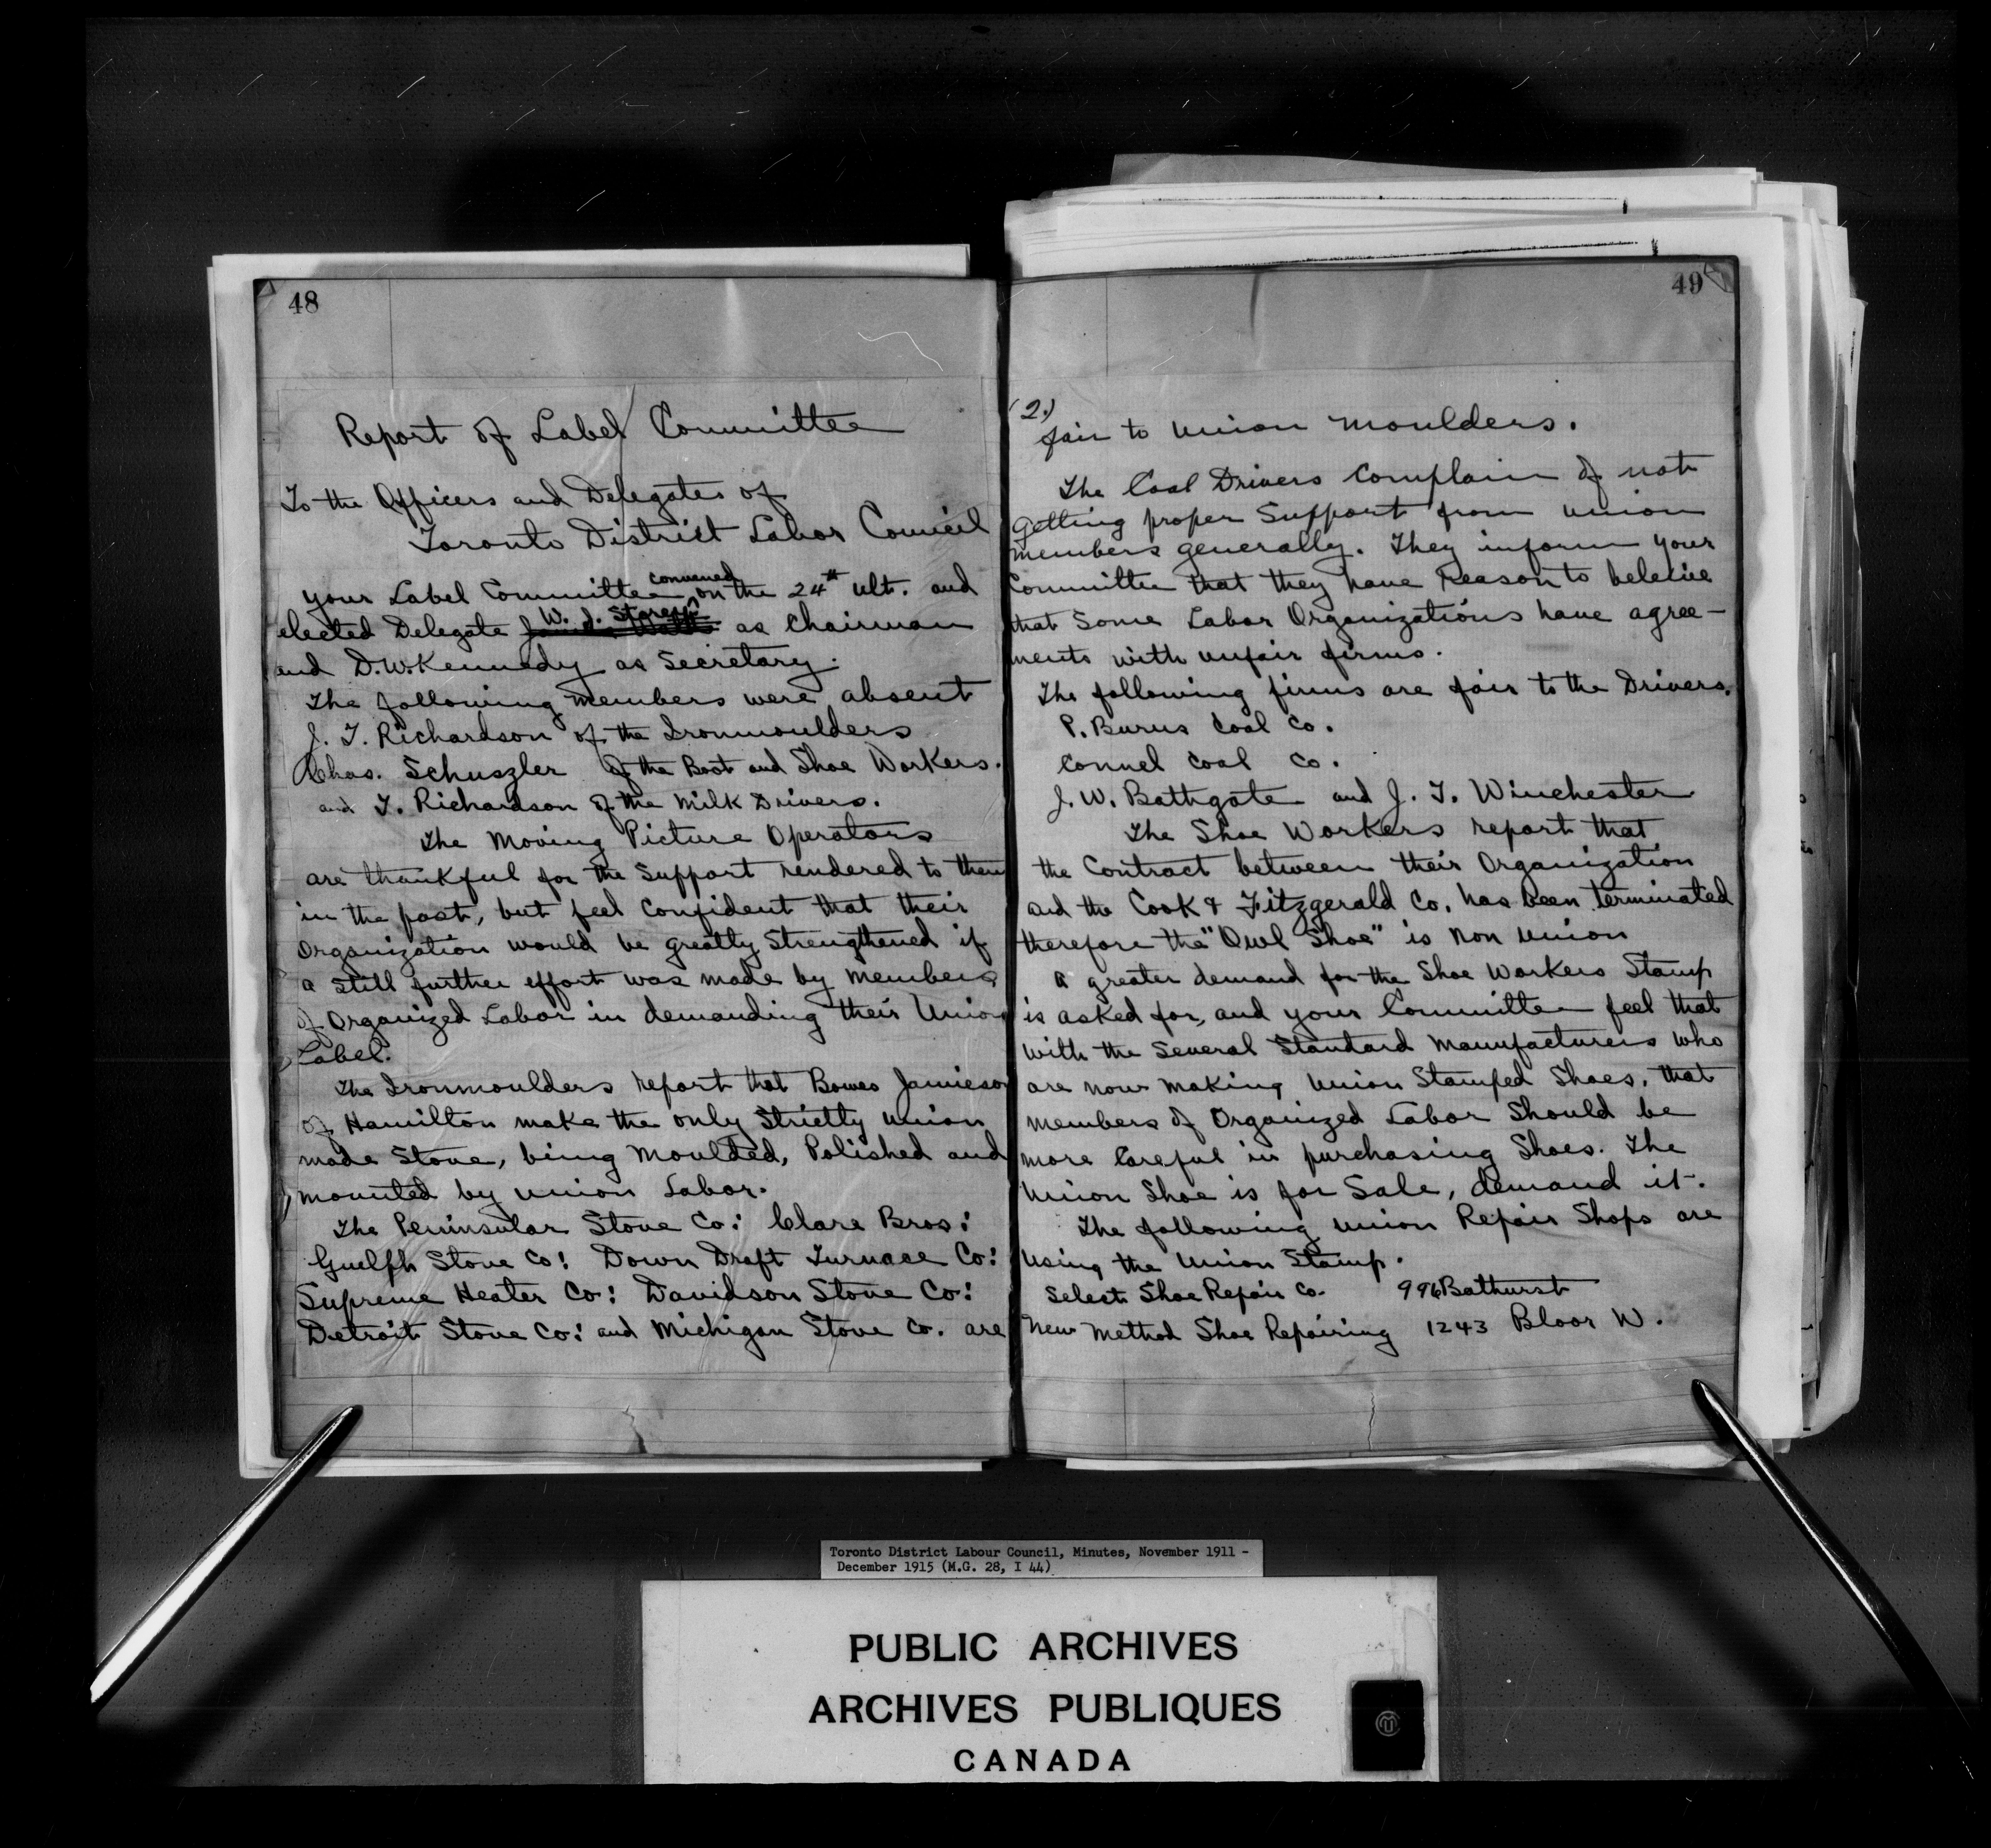 48
Report of Label Committee
To the Officers and Delegates of
Toronto District Labor Council
Your Label Committee convened on the 24th ult. and
elected Delegate W. J. Storey as Chairman
and D.W. Kennedy as Secretary.
The following members were absent
J. T. Richardson of the Ironmoulders
Chas. Schuszler of the Boot and Shoe Workers.
and T. Richardson of the Milk Drivers.
The Moving Picture Operators
are thankful for the Support rendered to them
in the past, but feel Confident that their
Organization would be greatly Strengthened if
a Still further effort was made by members
of Organized Labor in demanding their Union
Label.
The Ironmoulders report that Bowes Jamieson
of Hamilton make the only Strictly union
made Stove, being Moulded, Polished and
mounted by union Labor.
The Peninsular Stove Co: Clare Bros:
Guelph Stove Co: Down Draft Furnace Co:
Supreme Heater Co: Davidson Stove Co:
Detroit Stove Co: and Michigan Stove Co. are
49
(2.)
fair to union moulders.
The Coal Drivers Complain of not
getting proper Support from union
members generally. They inform your
Committee that they have reason to beleive
that Some Labor Organizations have agree-
ments with unfair firms.
The following firms are fair to the Drivers.
P. Burns Coal Co.
Connel Coal Co.
J. W. Bathgate and J. T. Winchester
The Shoe Workers report that
the Contract between their Organization
and the Cook & Fitzgerald Co. has been terminated
therefore the "Owl Shoe" is non union
A greater demand for the Shoe Workers Stamp
is asked for, and your Committee feel that
with the Several Standard Manufacturers who
are now making union Stamped Shoes, that
members of Organized Labor Should be
more Careful in purchasing Shoes. The
Union Shoe is for Sale, demand it.
The following union Repair Shops are
using the Union Stamp.
Select Shoe Repair Co. 996 Bathurst
New Method Shoe Repairing 1243 Bloor W.
Toronto District Labour Council, Minutes, November 1911 -
December 1915 (M.G. 28, I 44)
PUBLIC ARCHIVES
ARCHIVES PUBLIQUES
CANADA